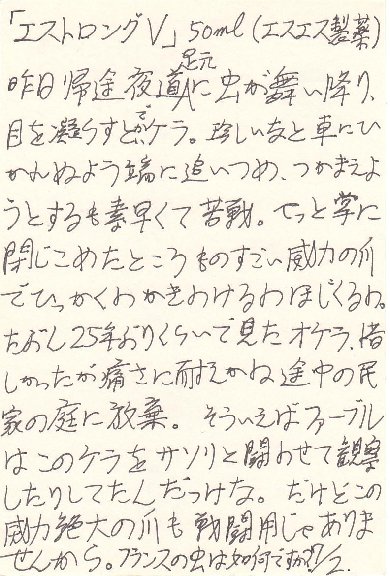 「エストロングV」50ml(エスエス製薬)
昨日帰途夜道足元に虫が舞い降り、
目を凝らすとでかいケラ。珍しいなと車にひ
かれぬよう端に追いつめ、つかまえよ
うとするも素早くて苦戦。やっと掌に
閉じこめたところものすごい威力の爪
でひっかくわかきわけるわほじくるわ。
たぶん25年ぶりくらいで見たオケラ、惜
しかったが痛さに耐えかね途中の民
家の庭に放棄。そういえばファーブル
はこのケラをサソリと闘わせて観察
したりしてたんだっけな。だけどこの
威力絶大の爪も戦闘用じゃありま
せんから。フランスの虫は如何ですか?1/2.